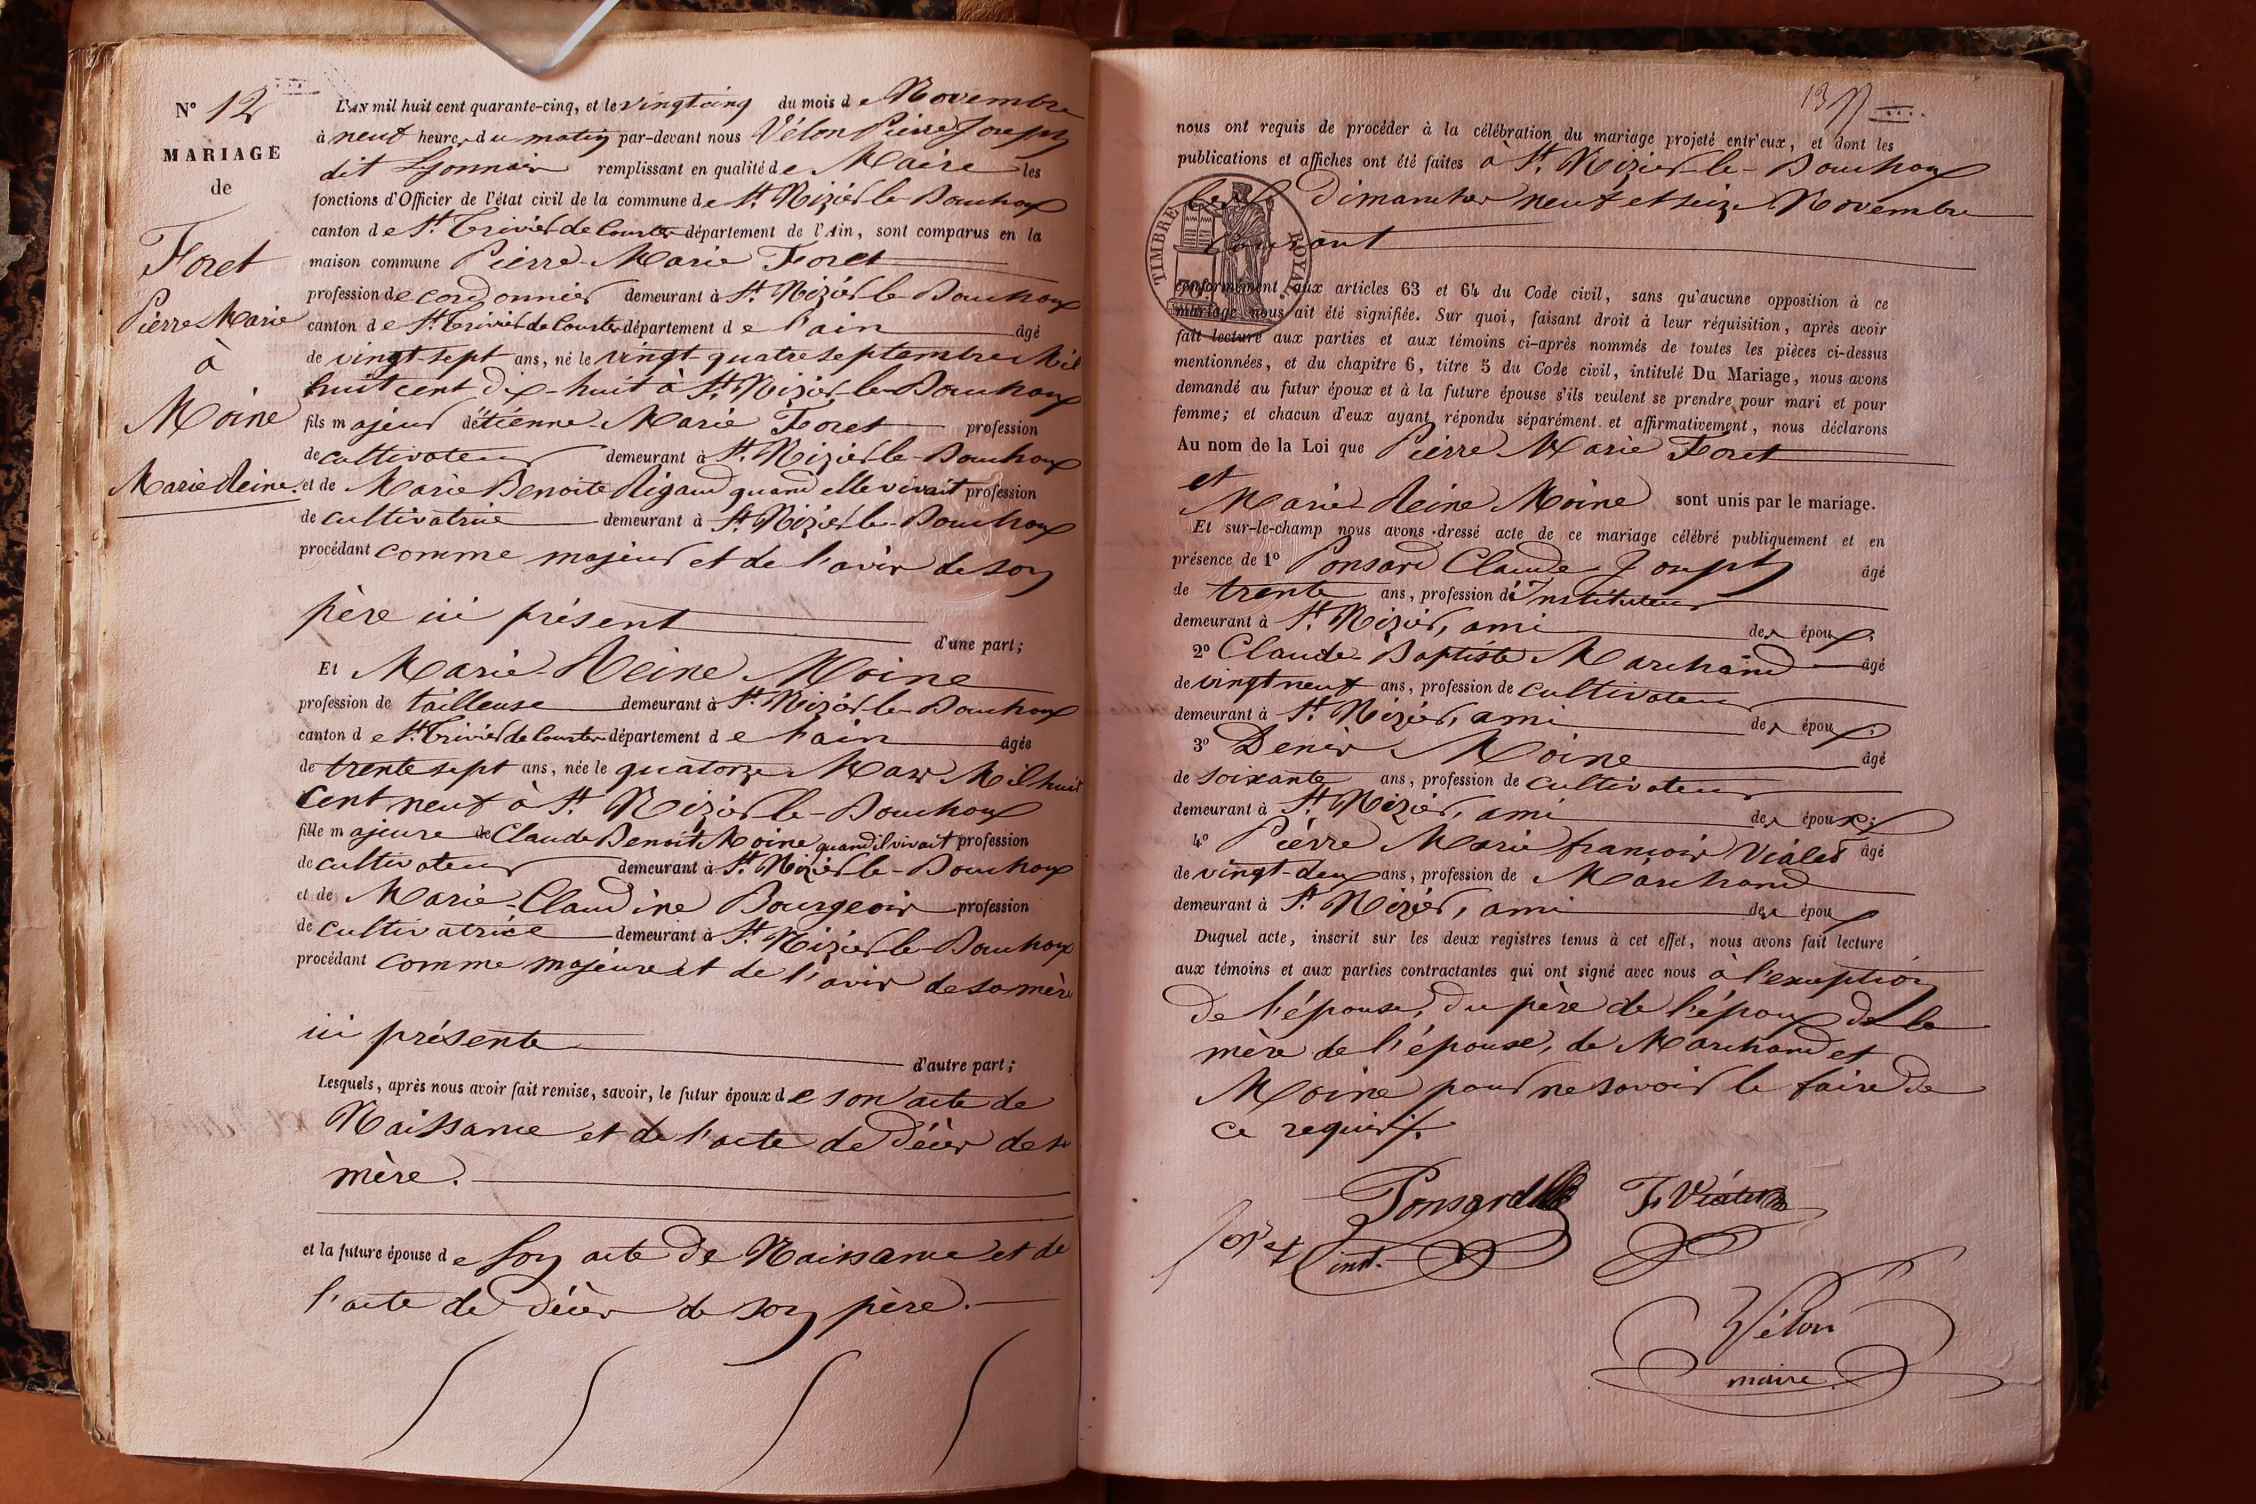 N° 12
MARIAGE
de
Foret
Pierre Marie
à
Moine
Marie Reine.
L'an mil huit cent quarante-cinq, et le vingt cinq du mois de Novembre
à neuf heures du matin par-devant nous Vélon Pierre Joseph
dit Lyonnais remplissant en qualité de Maire les
fonctions d'Officier de l'état civil de la commune de St. Nizier le Bouchoux
canton de St. Trivier de Courtes département de l'Ain, sont comparus en la
maison commune Pierre Marie Foret
profession de cordonnier demeurant à St. Nizier le Bouchoux
canton de St. Trivier de Courtes département de l'ain âgé
de vingt-sept ans, né le vingt-quatre septembre Mil
huit cent dix-huit à St. Nizier-le-Bouchoux
fils majeur d'étienne Marie Foret profession
de cultivateur demeurant à St. Nizier le Bouchoux
et de Marie Benoite Rigaud quand elle vivait profession
de cultivatrice demeurant à St. Nizier le Bouchoux
procédant comme majeur et de l'avis de son
père ici présent
d'une part;
Et Marie Reine Moine
profession de tailleuse demeurant à St. Nizier le Bouchoux
canton de St. Trivier de Courtes département de l'ain âgée
de trente sept ans, née le quatorze Mars Mil huit
cent neuf à St. Nizier le-Bouchoux
fille majeure de Claude Benoit Moine quand il vivait profession
de cultivateur demeurant à St. Nizier le-Bouchoux
et de Marie-Claudine Bourgeois profession
de cultivatrice demeurant à St. Nizier le Bouchoux
procédant comme majeure et de l'avis de sa mère
ici présente
d'autre part;
Lesquels, après nous avoir fait remise, savoir, le futur époux de son acte de
Naissance et de l'acte de Décès de sa
mère.
et la future épouse de son acte de Naissance et de
l'acte de décès de son père.
13
nous ont requis de procéder à la célébration du mariage projeté entr'eux, et dont les
publications et affiches ont été faites à St. Nizier-le-Bouchoux
les Dimanches neuf et seize Novembre
courant
TIMBRE ROYAL
conformément aux articles 63 et 64 du Code civil, sans qu'aucune opposition à ce
mariage nous ait été signifiée. Sur quoi, faisant droit à leur réquisition, après avoir
fait lecture aux parties et aux témoins ci-après nommés de toutes les pièces ci-dessus
mentionnées, et du chapitre 6, titre 5 du Code civil, intitulé Du Mariage, nous avons
demandé au futur époux et à la future épouse s'ils veulent se prendre pour mari et pour
femme; et chacun d'eux ayant répondu séparément et affirmativement, nous déclarons
Au nom de la Loi que Pierre Marie Foret
et
Marie Reine Moine sont unis par le mariage.
Et sur-le-champ nous avons dressé acte de ce mariage célébré publiquement et en
présence de 1° Ponsard Claude Joseph âgé
de trente ans, profession d'Instituteur
demeurant à St. Nizier, ami des époux;
2° Claude-Baptiste Marchand âgé
de vingt neuf ans, profession de cultivateur
demeurant à St. Nizier, ami des époux;
3° Denis Moine âgé
de soixante ans, profession de cultivateur
demeurant à St. Nizier, ami des époux;
4° Pierre Marie françois Viâlet âgé
de vingt-deux ans, profession de Marchand
demeurant à St. Nizier, ami des époux
Duquel acte, inscrit sur les deux registres tenus à cet effet, nous avons fait lecture
aux témoins et aux parties contractantes qui ont signé avec nous à l'exception
de l'épouse, du père de l'époux de la
mère de l'épouse, de Marchand et
Moine pour ne savoir le faire de
ce requis.
Ponsard
inst.
F. Viâlet
foret
Vélon
maire.